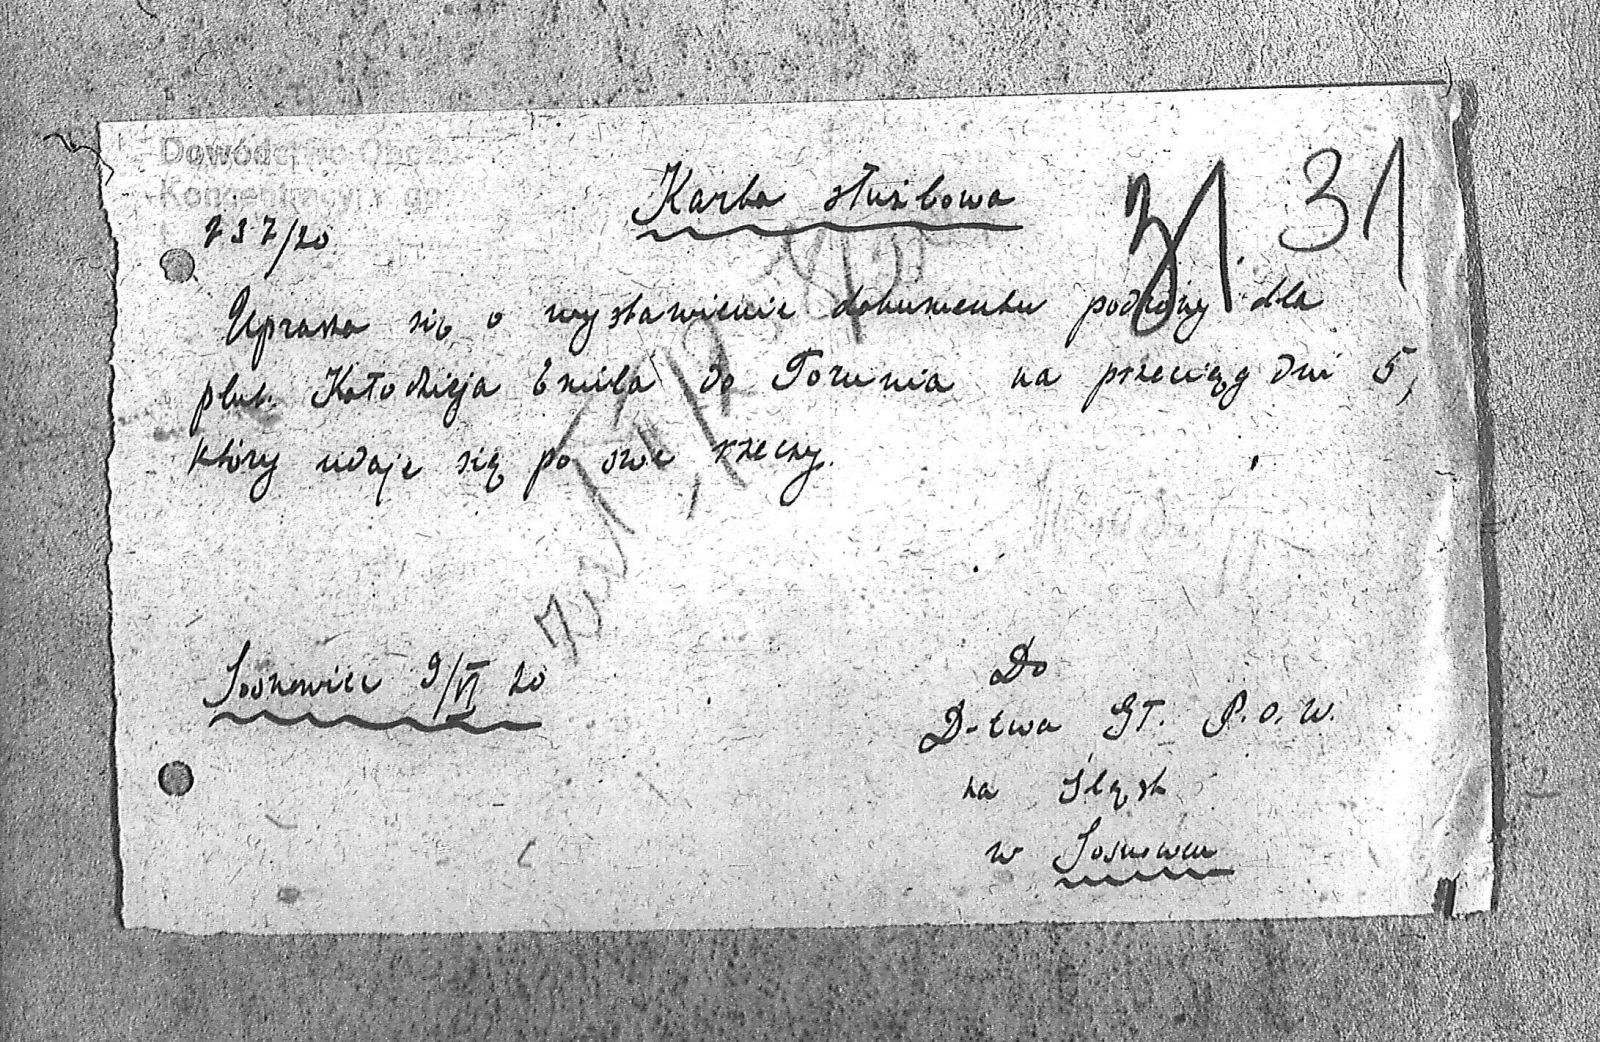 Dowództwo Obozu
Koncentracyjnego
737/20
Karta służbowa
31 31
Uprasza się o wystawienie dokumentu podróży dla
plut. Kołodzieja Emila do Torunia na przeciąg dni 5,
który udaje się po swe rzeczy.
Sosnowiec 9/VI 20
Do
D-twa GT. P.O.W.
na Śląsk
w Sosnowcu